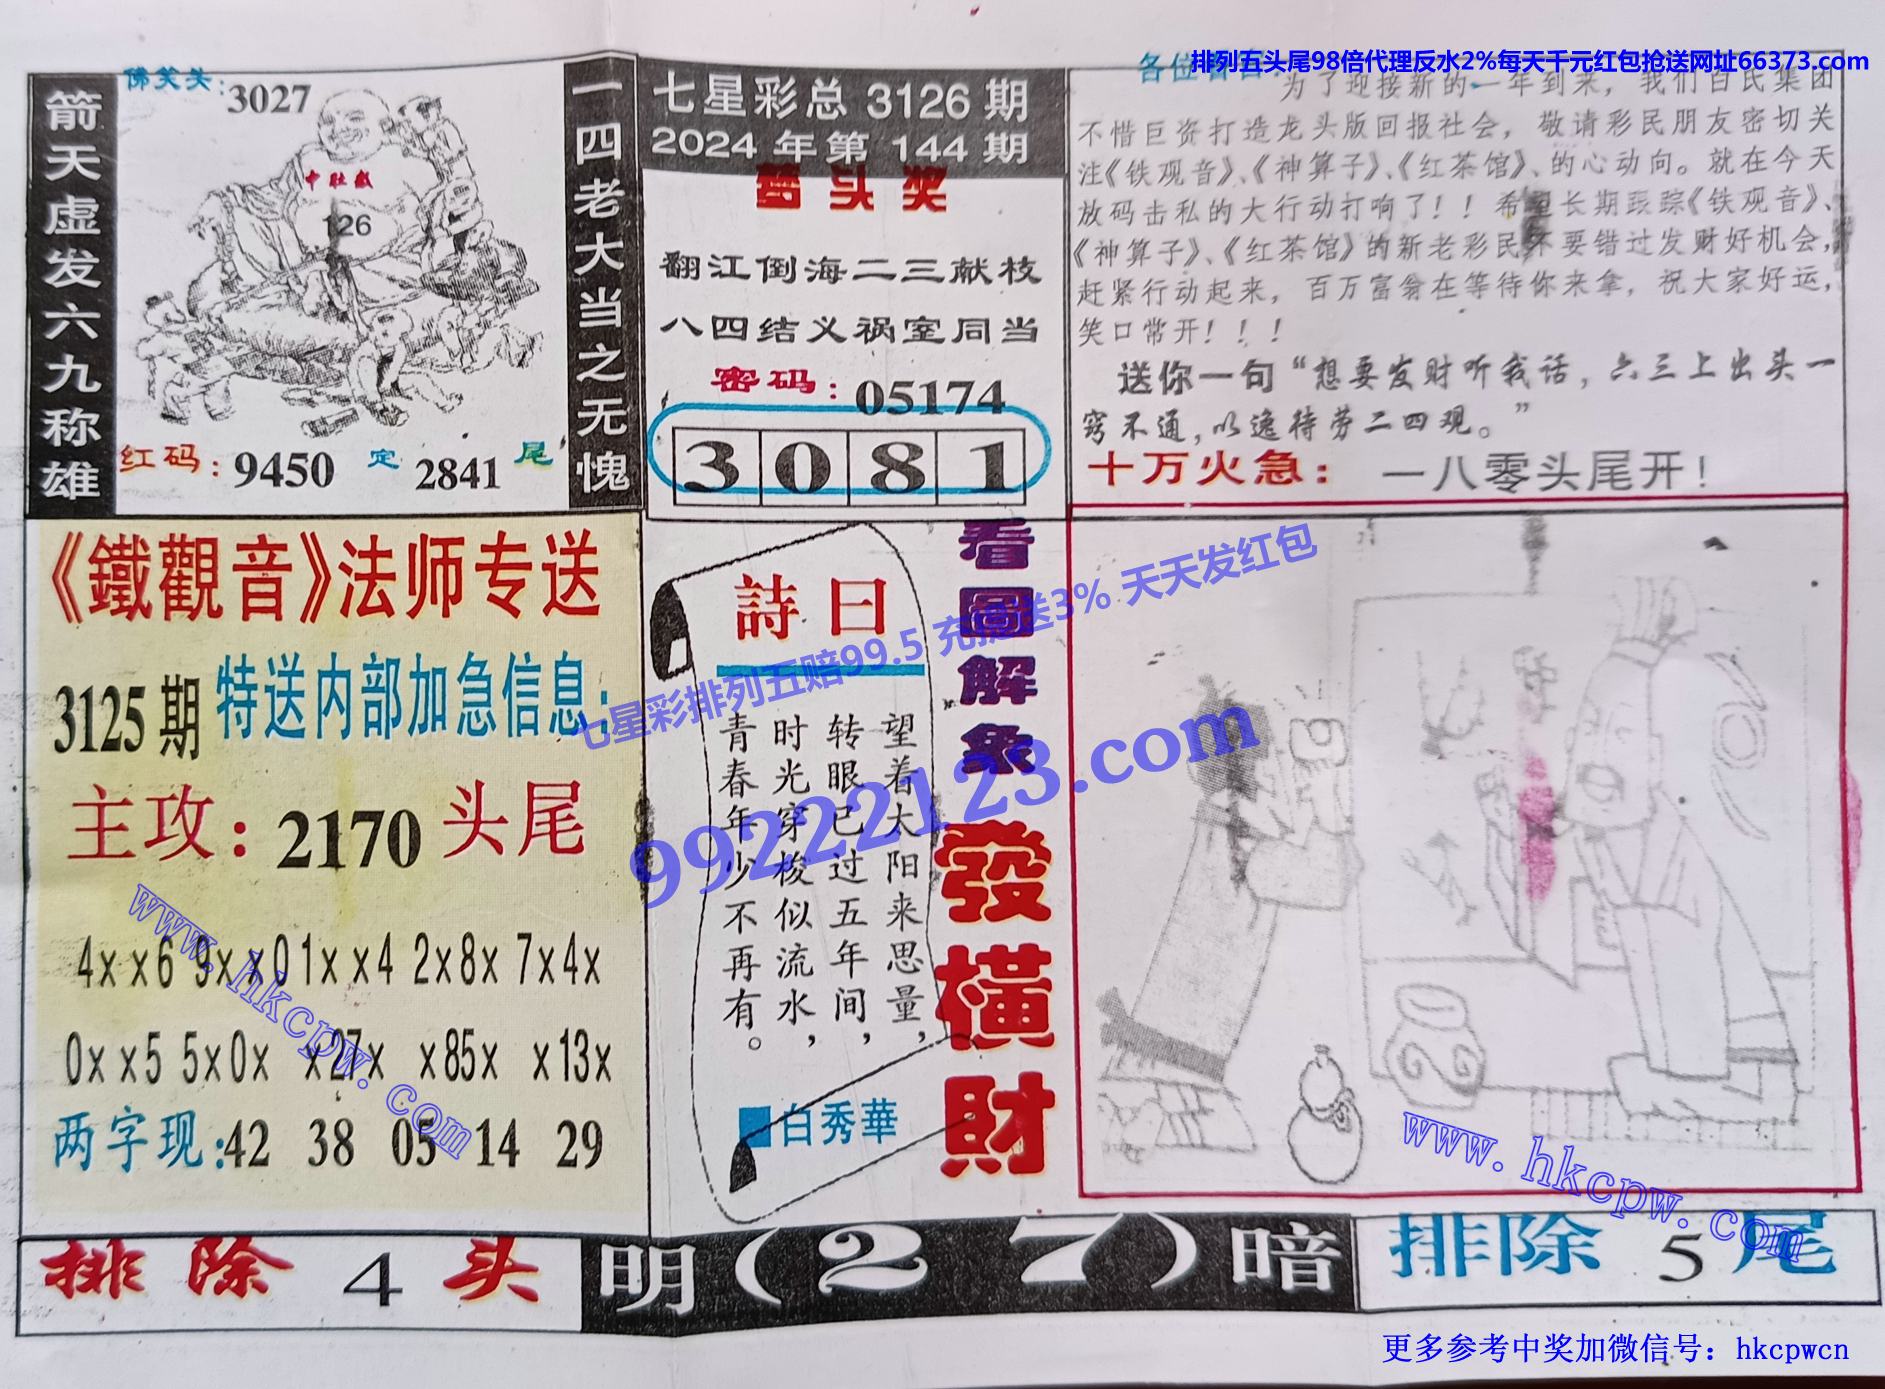 排列五头尾98倍代理反水2%每天千元红包抢送网址66373.com
箭天虚发六九称雄
佛笑头:3027
中肚截
126
红码:9450 定2841尾
一四老大当之无愧
七星彩总3126期
2024年第144期
梦头奖
翻江倒海二三献枝
八四结义祸室同当
密码:05174
3081
各位
为了迎接新的一年到来，我们百氏集团
不惜巨资打造龙头版回报社会，敬请彩民朋友密切关
注《铁观音》、《神算子》、《红茶馆》、的心动向。就在今天
放码击私的大行动打响了！！希望长期跟踪《铁观音》、
《神算子》、《红茶馆》的新老彩民不要错过发财好机会，
赶紧行动起来，百万富翁在等待你来拿，祝大家好运，
笑口常开！！！
送你一句“想要发财听我话，六三上出头一
窍不通，以逸待劳二四观。”
十万火急：一八零头尾开！
《鐵觀音》法师专送
3125期 特送内部加急信息:
主攻:2170头尾
4xx6 9xx0 1xx4 2x8x 7x4x
0xx5 5x0x x27x x85x x13x
两字现:42 38 05 14 29
詩曰
望着太阳来思量，
转眼已过五年间，
时光穿梭似流水，
青春年少不再有。
白秀華
看圖解象
發橫財
七星彩排列五赔99.5 充提送3% 天天发红包
99222123.com
www.hkcpw.com
www.hkcpw.com
排除4头
明(27)暗
排除5尾
更多参考中奖加微信号：hkcpwcn